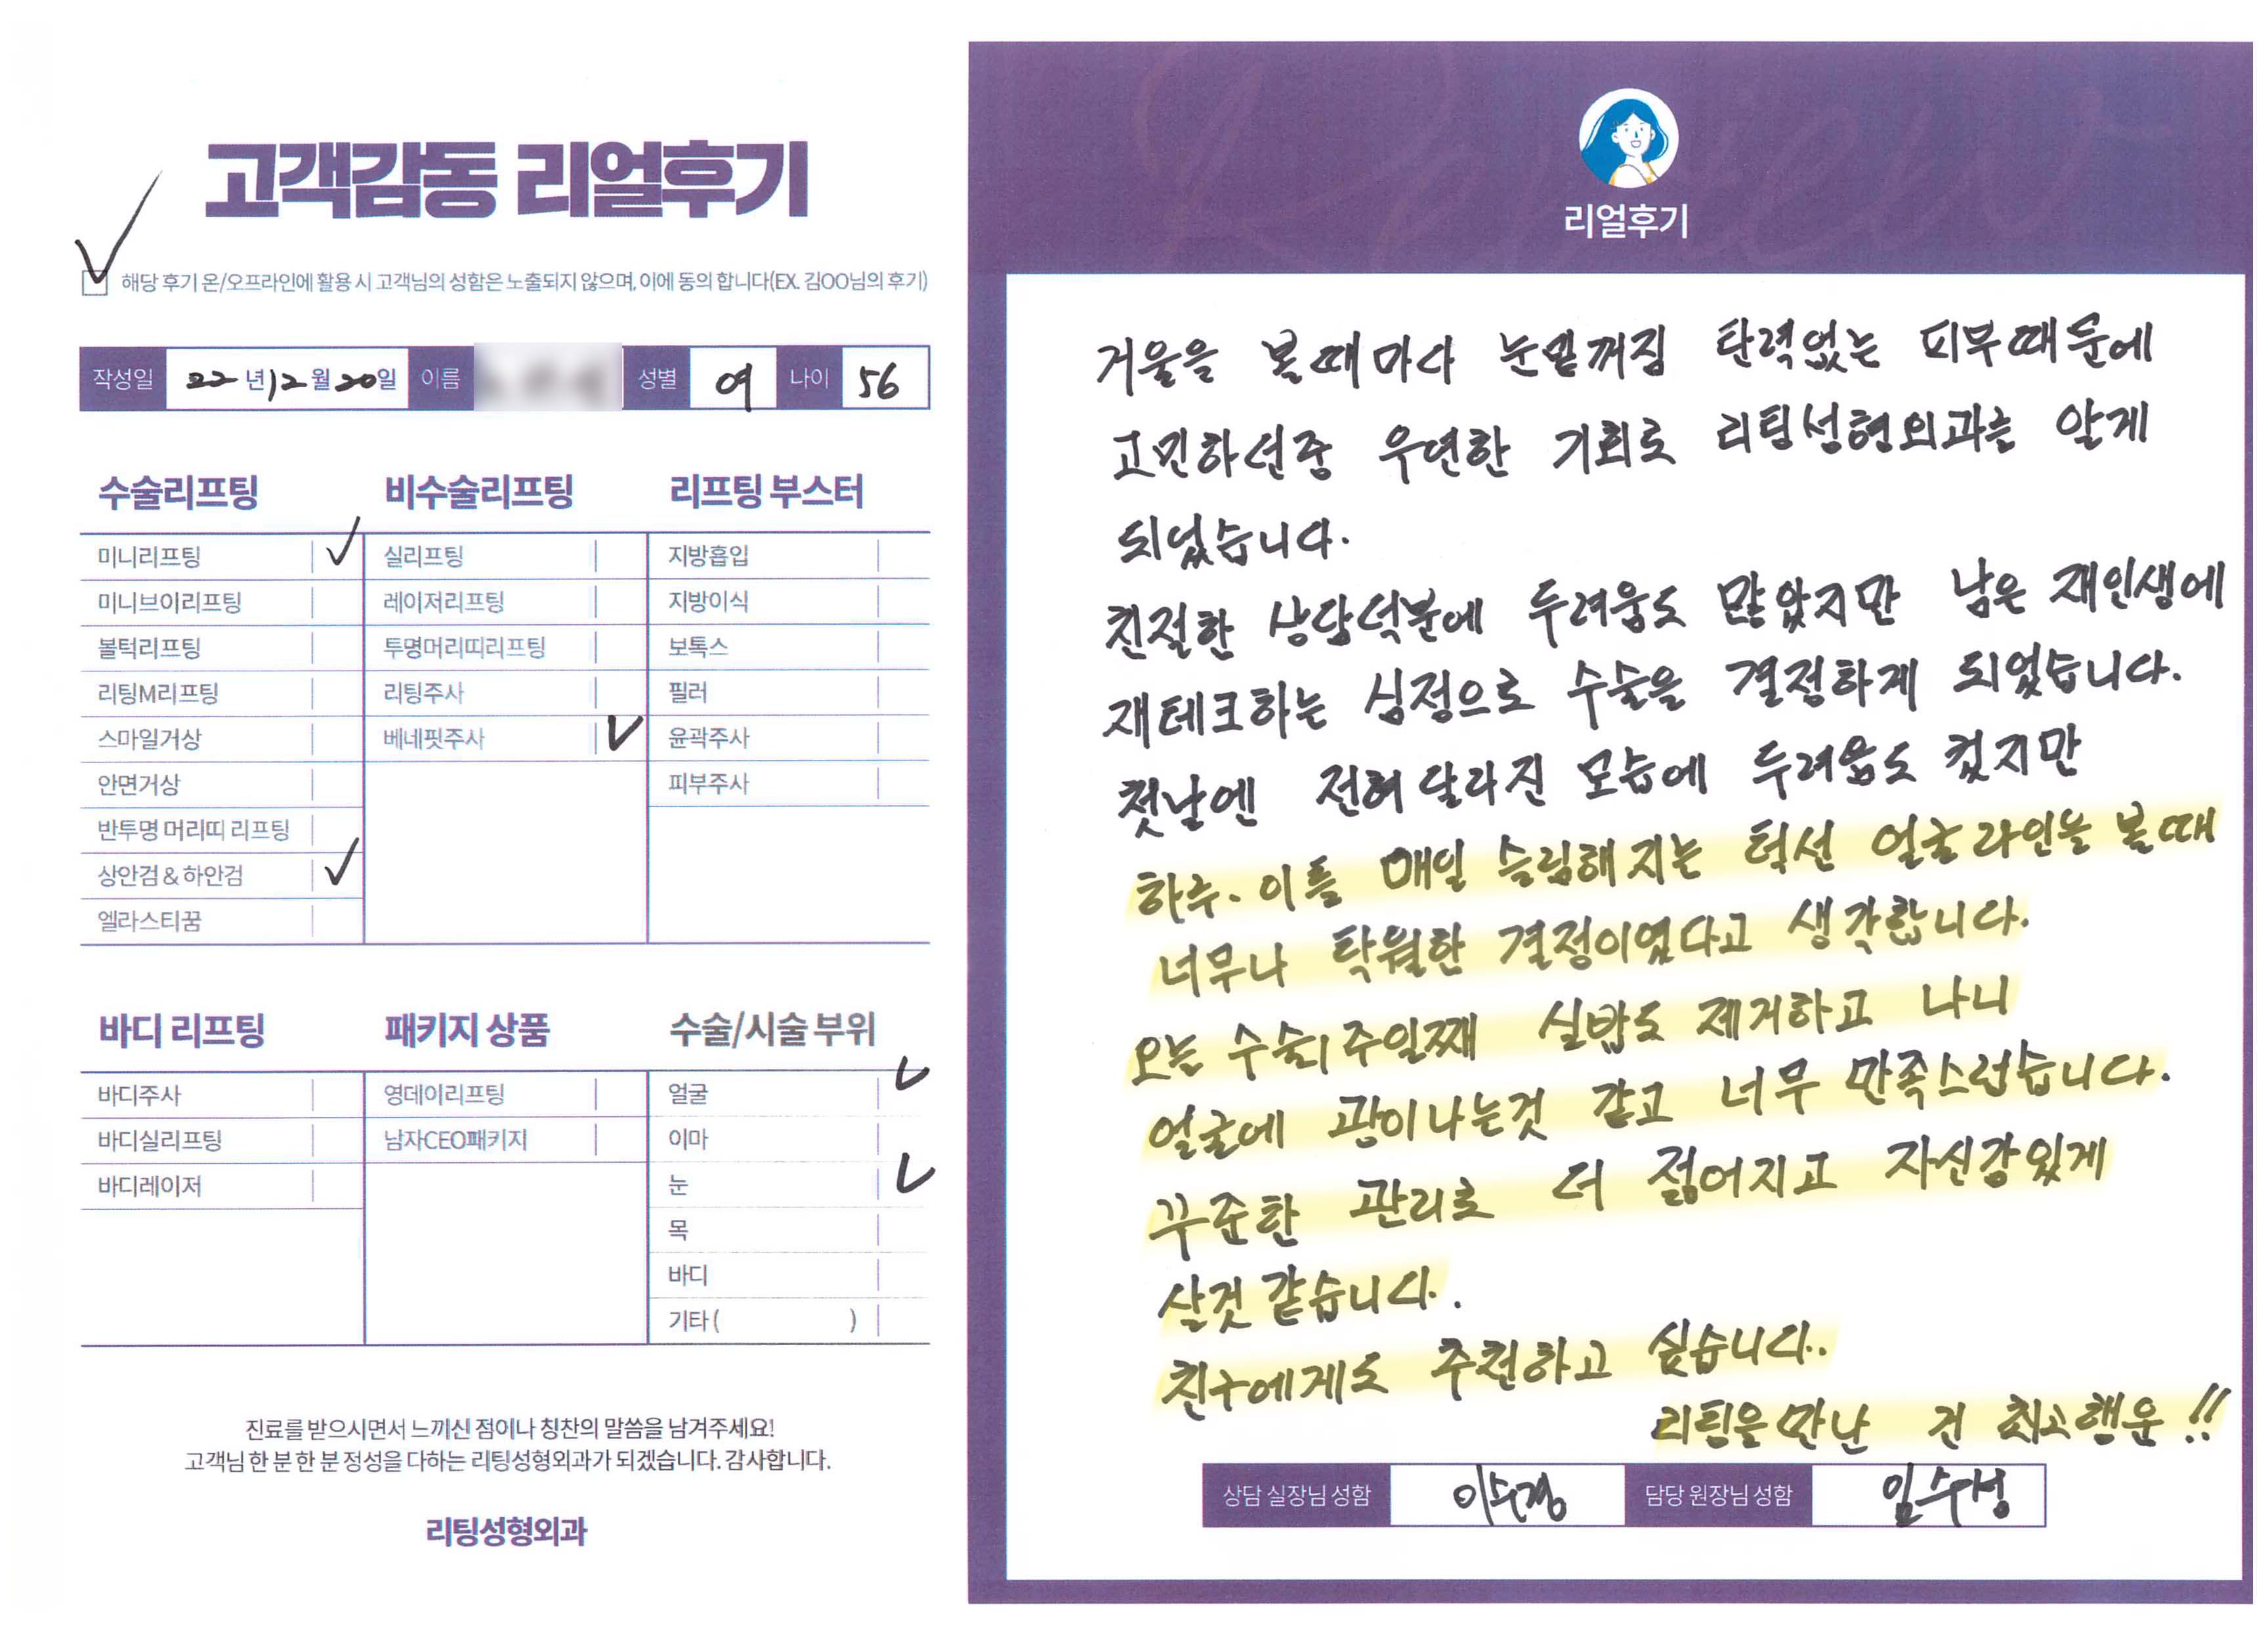 고객감동 리얼후기
해당 후기 온/오프라인에 활용 시 고객님의 성함은 노출되지 않으며, 이에 동의 합니다(EX. 김OO님의 후기)
작성일 22년 12월 20일 이름 성별 여 나이 56
수술리프팅
미니리프팅
미니브이리프팅
볼턱리프팅
리팅M리프팅
스마일거상
안면거상
반투명 머리띠 리프팅
상안검 & 하안검
엘라스티꿈
비수술리프팅
실리프팅
레이저리프팅
투명머리띠리프팅
리팅주사
베네핏주사
리프팅 부스터
지방흡입
지방이식
보톡스
필러
윤곽주사
피부주사
바디 리프팅
바디주사
바디실리프팅
바디레이저
패키지 상품
영데이리프팅
남자CEO패키지
수술/시술 부위
얼굴
이마
눈
목
바디
기타 ( )
진료를 받으시면서 느끼신 점이나 칭찬의 말씀을 남겨주세요!
고객님 한 분 한 분 정성을 다하는 리팅성형외과가 되겠습니다. 감사합니다.
리팅성형외과
리얼후기
거울을 볼때마다 눈밑꺼짐 탄력없는 피부때문에
고민하던중 우연한 기회로 리팅성형외과는 알게
되었습니다.
친절한 상담덕분에 두려움도 많았지만 남은 재인생에
재테크하는 심정으로 수술을 결정하게 되었습니다.
첫날엔 전혀 달라진 모습에 두려움도 컸지만
하루. 이틀 매일 슬림해지는 턱선 얼굴라인을 볼때
너무나 탁월한 결정이였다고 생각합니다.
오늘 수술1주일째 실밥도 제거하고 나니
얼굴에 광이나는것 같고 너무 만족스럽습니다.
꾸준한 관리로 더 젊어지고 자신감있게
살것 같습니다.
친구에게도 추천하고 싶습니다.
리팅을 만난 건 최고행운!!
상담 실장님 성함 이수경 담당 원장님 성함 임수성